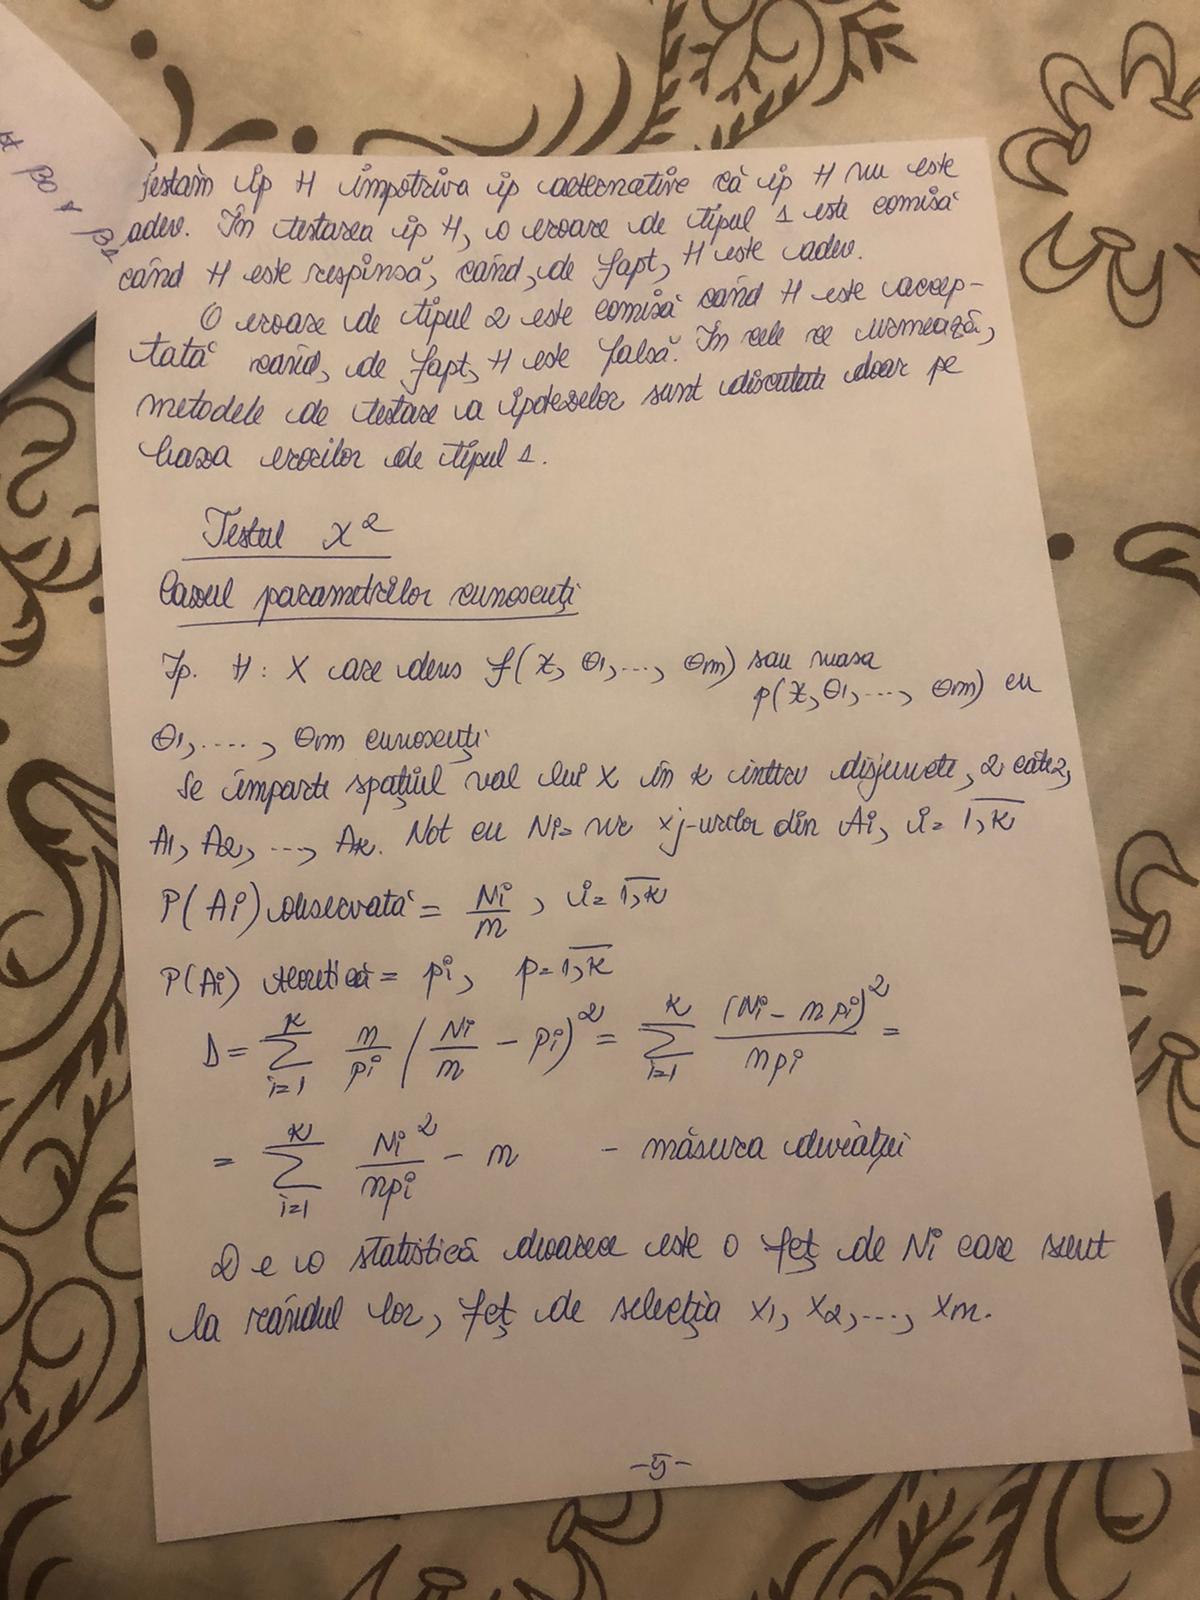 β0 & β1
Testăm ip H împotriva ip alternative că ip H nu este
adev. În testarea ip H, o eroare de tipul 1 este comisă
când H este respinsă, când, de fapt, H este adev.
O eroare de tipul 2 este comisă când H este accep-
tată când, de fapt, H este falsă. În cele ce urmează,
metodele de testare a ipotezelor sunt discutate doar pe
baza erorilor de tipul 1.
Testul X²
Cazul parametrilor cunoscuți
Ip. H: X are dens f(x, θ1, ..., θm) sau masa
p(x, θ1, ..., θm) cu
θ1, ...., θm cunoscuți
Se împarte spațiul val lui X în k intrv disjuncte, 2 câte 2,
A1, A2, ..., Ak. Not cu Ni = nr xj-urilor din Ai, i = 1,k
P(Ai) observată = Ni/n, i = 1,k
P(Ai) teoretică = pi, p = 1,k
D = Σ_{i=1}^{k} n/pi (Ni/n - pi)² = Σ_{i=1}^{k} (Ni - npi)²/npi =
= Σ_{i=1}^{k} Ni²/npi - n - măsura deviației
D e o statistică deoarece este o fcț de Ni care sunt
la rândul lor, fcț de selecția X1, X2, ..., Xn.
-5-